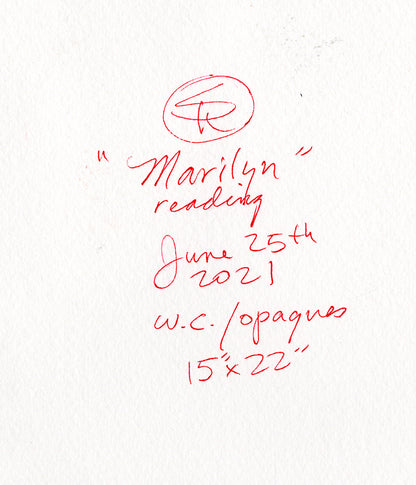 "Marilyn"
reading
June 25th
2021
w.c./opaques
15"x22"